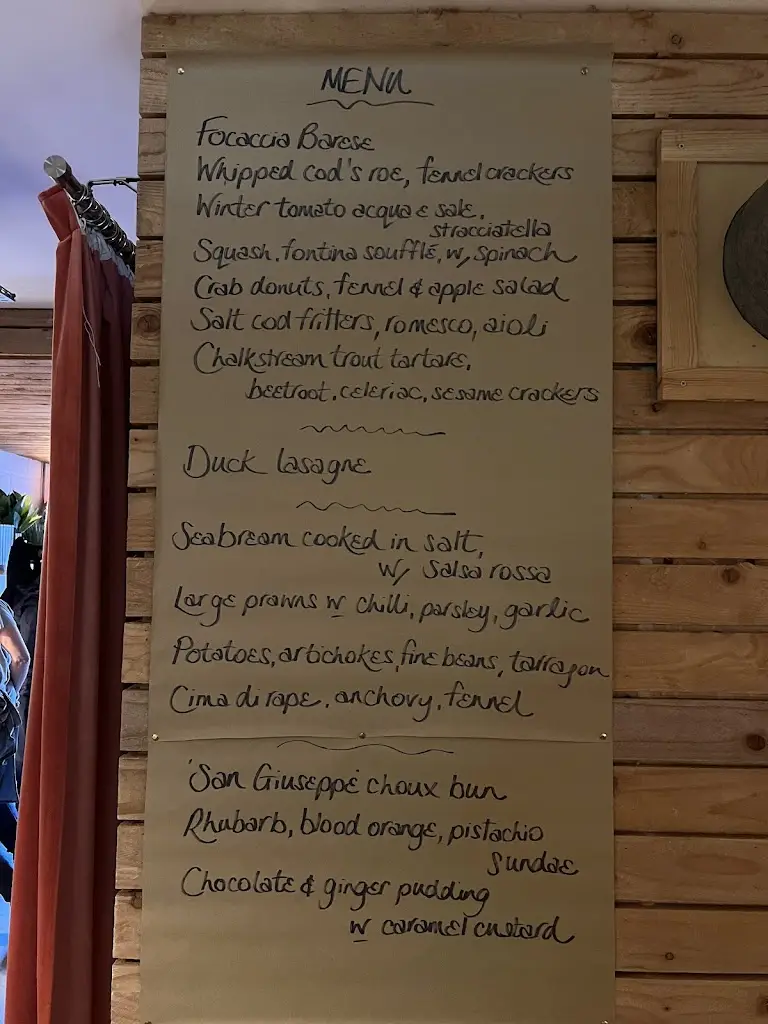 MENU
Focaccia Barese
Whipped cod's roe, fennel crackers
Winter tomato acqua e sale,
stracciatella
Squash, fontina soufflé, w/ spinach
Crab donuts, fennel & apple salad
Salt cod fritters, romesco, aioli
Chalkstream trout tartare,
beetroot, celeriac, sesame crackers
Duck lasagne
Seabream cooked in salt,
w/ Salsa rossa
Large prawns w chilli, parsley, garlic
Potatoes, artichokes, fine beans, tarragon
Cima di rape, anchovy, fennel
'San Giuseppe' choux bun
Rhubarb, blood orange, pistachio
Sundae
Chocolate & ginger pudding
w caramel custard